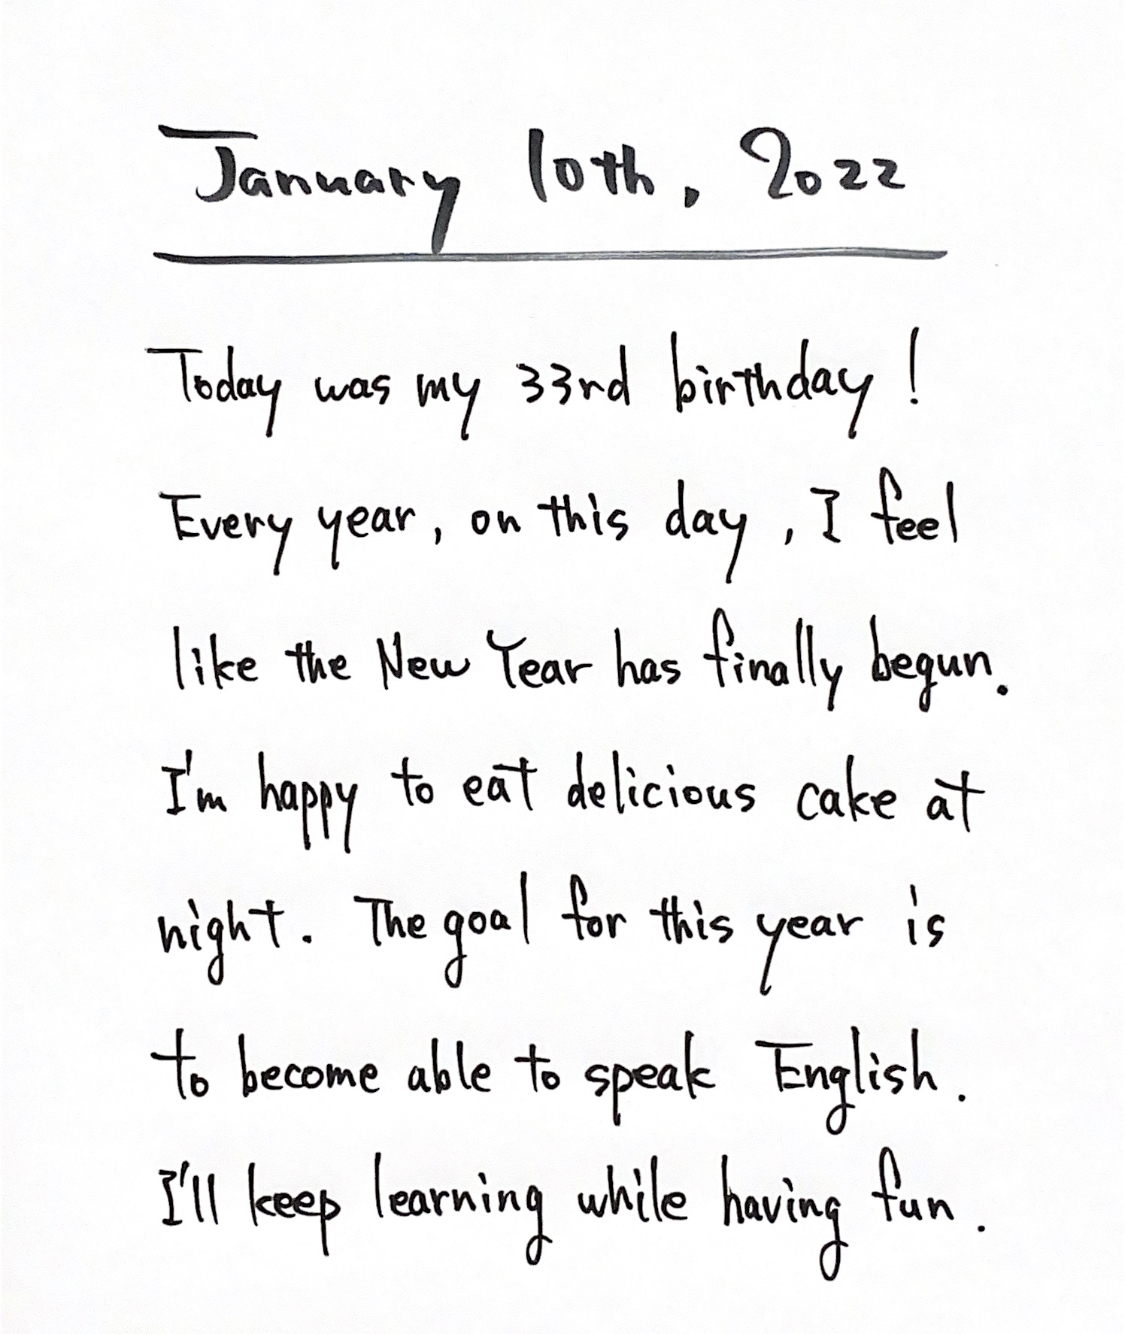 January 10th, 2022
Today was my 33rd birthday!
Every year, on this day, I feel
like the New Year has finally begun.
I'm happy to eat delicious cake at
night. The goal for this year is
to become able to speak English.
I'll keep learning while having fun.